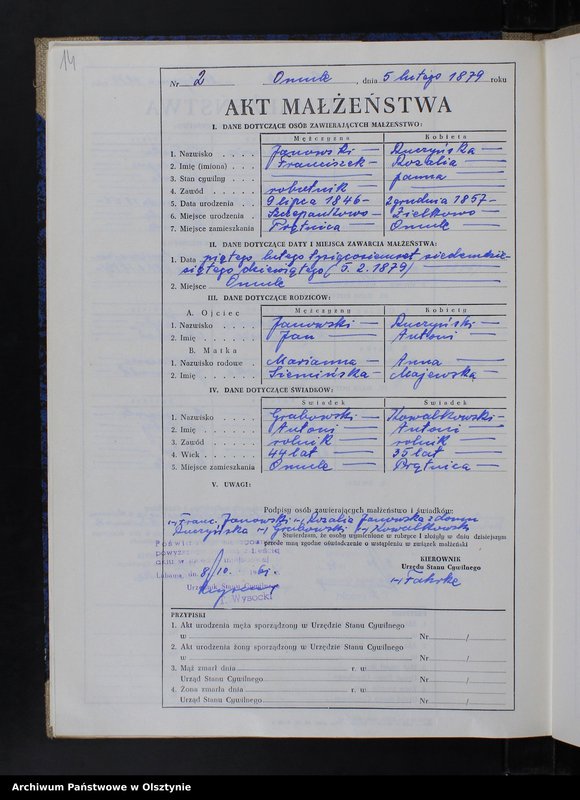 14
Nr 2 Omule, dnia 5 lutego 1879 roku
AKT MAŁŻEŃSTWA
I. DANE DOTYCZĄCE OSÓB ZAWIERAJĄCYCH MAŁŻEŃSTWO:
Mężczyzna Kobieta
1. Nazwisko Janowski Ruczyńska
2. Imię (imiona) Franciszek Rozalia
3. Stan cywilny panna
4. Zawód robotnik
5. Data urodzenia 9 lipca 1846 2 grudnia 1857
6. Miejsce urodzenia Szczepankowo Zielkowo
7. Miejsce zamieszkania Prątnica Omule
II. DANE DOTYCZĄCE DATY I MIEJSCA ZAWARCIA MAŁŻEŃSTWA:
1. Data piątego lutego tysiącosiemset siedemdzie-
siątego dziewiątego (5. 2. 1879)
2. Miejsce Omule
III. DANE DOTYCZĄCE RODZICÓW:
Mężczyzny Kobiety
A. Ojciec
1. Nazwisko Janowski Ruczyński
2. Imię Jan Antoni
B. Matka
1. Nazwisko rodowe Marianna Anna
2. Imię Siemińska Majewska
IV. DANE DOTYCZĄCE ŚWIADKÓW:
Świadek Świadek
1. Nazwisko Grabowski Kowalkowski
2. Imię Antoni Antoni
3. Zawód rolnik rolnik
4. Wiek 44 lat 35 lat
5. Miejsce zamieszkania Omule Prątnica
V. UWAGI:
Podpisy osób zawierających małżeństwo i świadków:
Franc. Janowski Rozalia Janowska z domu
Ruczyńska Grabowski Kowalkowski
Stwierdzam, że osoby wymienione w rubryce I złożyły w dniu dzisiejszym
przede mną zgodne oświadczenie o wstąpieniu w związek małżeński
KIEROWNIK
Urzędu Stanu Cywilnego
Fahrke
Lubawa, dn. 8/10.
Urzędnik Stanu Cywilnego
Wysocki
PRZYPISKI
1. Akt urodzenia męża sporządzony w Urzędzie Stanu Cywilnego
w Nr /
2. Akt urodzenia żony sporządzony w Urzędzie Stanu Cywilnego
w Nr /
3. Mąż zmarł dnia r. w
Urząd Stanu Cywilnego Nr /
4. Żona zmarła dnia r. w
Urząd Stanu Cywilnego Nr /
Archiwum Państwowe w Olsztynie